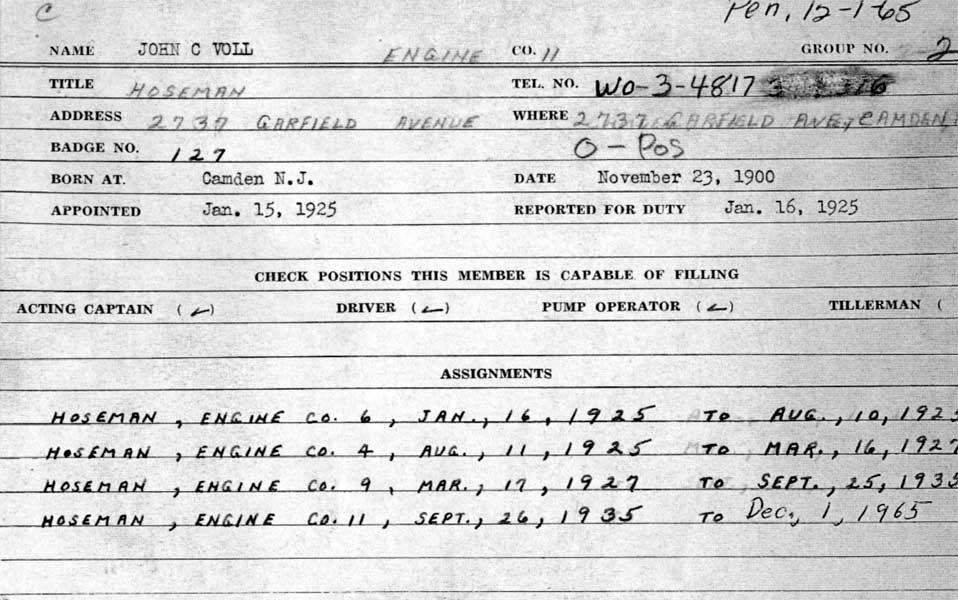 C
Pen, 12-1-65
NAME JOHN C VOLL ENGINE CO. 11 GROUP NO. 2
TITLE HOSEMAN TEL. NO. WO-3-4817
ADDRESS 2737 GARFIELD AVENUE WHERE 2737 GARFIELD AVE, CAMDEN,
BADGE NO. 127 O - POS
BORN AT. Camden N.J. DATE November 23, 1900
APPOINTED Jan. 15, 1925 REPORTED FOR DUTY Jan. 16, 1925
CHECK POSITIONS THIS MEMBER IS CAPABLE OF FILLING
ACTING CAPTAIN (✓) DRIVER (✓) PUMP OPERATOR (✓) TILLERMAN (
ASSIGNMENTS
HOSEMAN, ENGINE CO. 6, JAN., 16, 1925 TO AUG., 10, 1925
HOSEMAN, ENGINE CO. 4, AUG., 11, 1925 TO MAR., 16, 1927
HOSEMAN, ENGINE CO. 9, MAR., 17, 1927 TO SEPT., 25, 1935
HOSEMAN, ENGINE CO. 11, SEPT., 26, 1935 TO Dec., 1, 1965